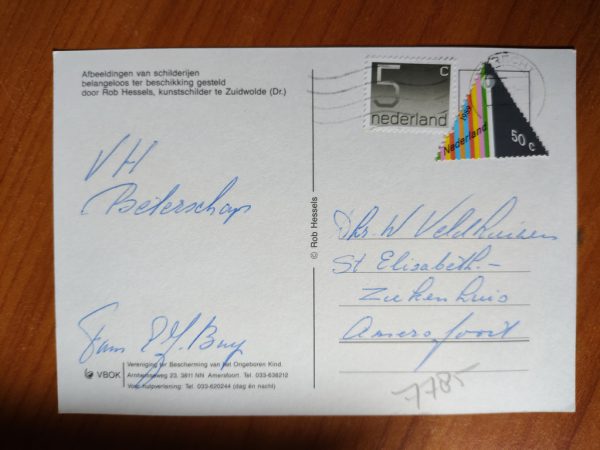 Afbeeldingen van schilderijen
belangeloos ter beschikking gesteld
door Rob Hessels, kunstschilder te Zuidwolde (Dr.)
5 c
nederland
1989
Nederland
50 c
VH
Beterschap
Fam
© Rob Hessels
Dhr. W Veldhuisen
St Elisabeth.-
Ziekenhuis
Amersfoort
7785
VBOK
Vereniging ter Bescherming van het Ongeboren Kind.
Arnhemseweg 23, 3811 NN Amersfoort. Tel. 033-638212
Voor hulpverlening: Tel. 033-620244 (dag én nacht)